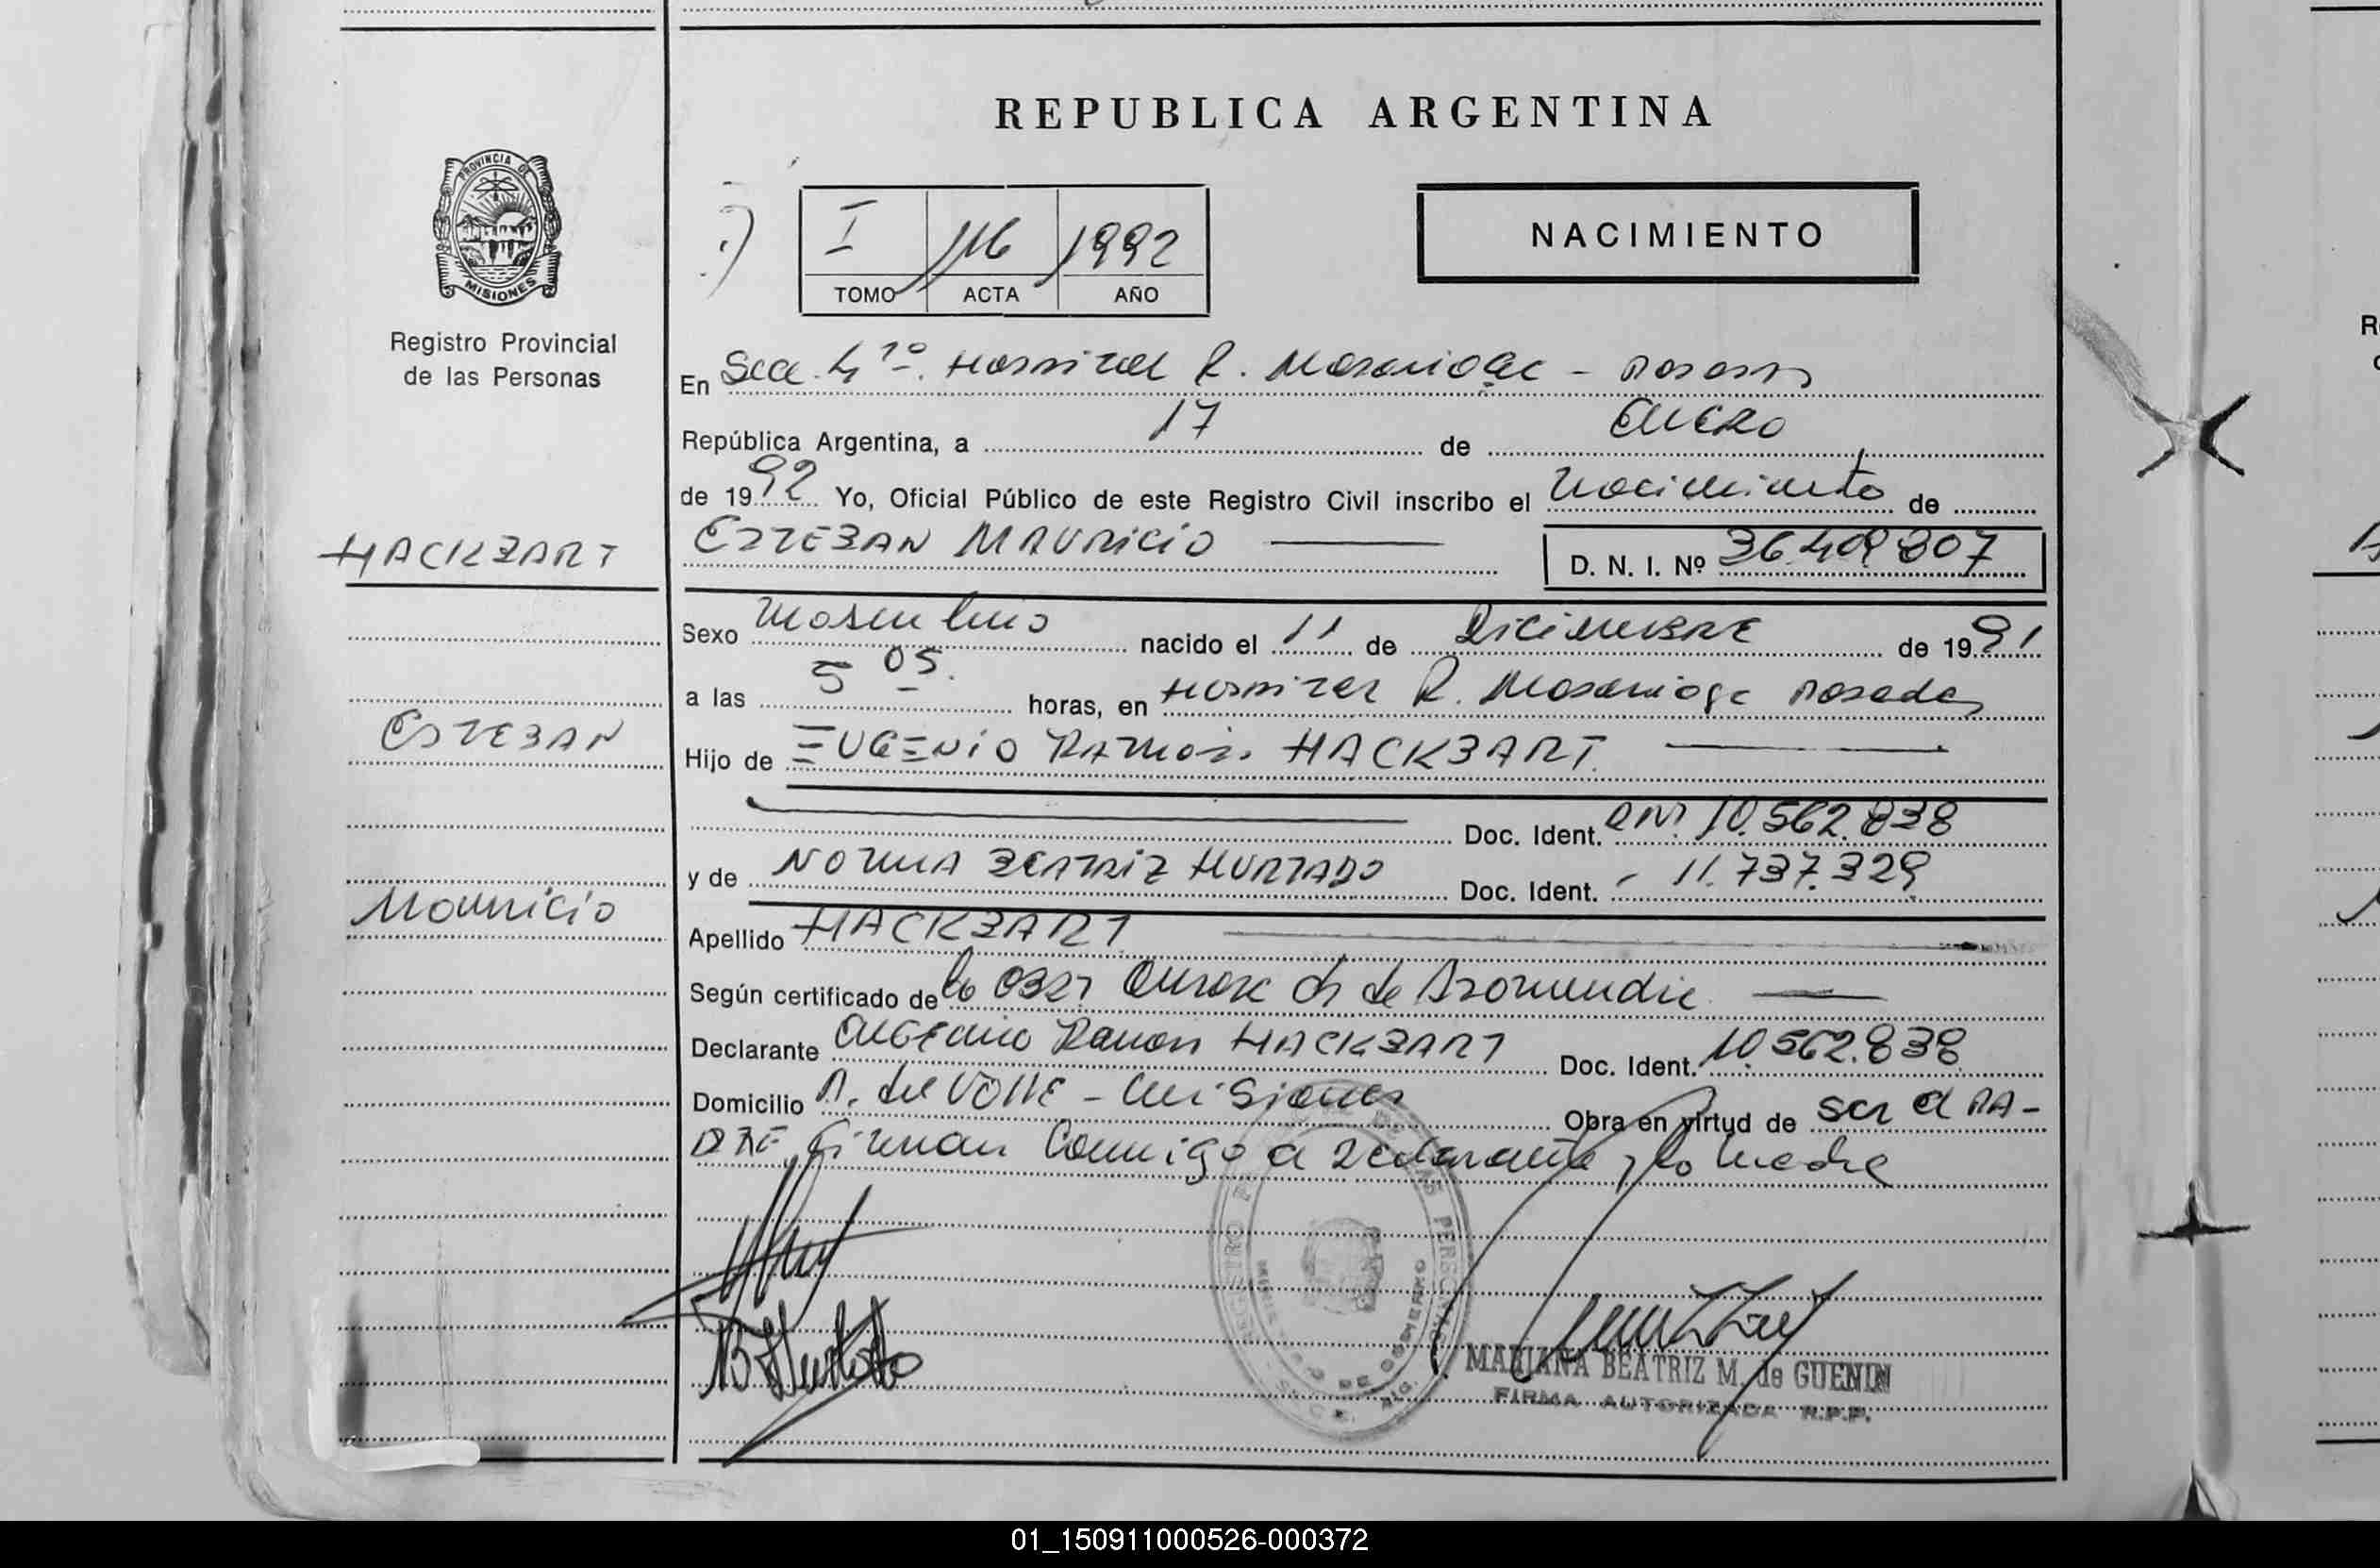 REPUBLICA ARGENTINA
PROVINCIA DE
MISIONES
Registro Provincial
de las Personas
I 116 1992
TOMO ACTA AÑO
NACIMIENTO
En Secc. 4ta. Hospital R. Madariaga - Posadas
República Argentina, a 17 de Enero
de 1992 Yo, Oficial Público de este Registro Civil inscribo el Nacimiento de
HACKBART
ESTEBAN MAURICIO
D. N. I. Nº 36.409.807
Sexo Masculino nacido el 11 de Diciembre de 1991
a las 5 05. horas, en Hospital R. Madariaga Posadas
ESTEBAN
Hijo de EUGENIO RAMON HACKBART.
Doc. Ident. DNI 10.562.838
y de NORMA BEATRIZ HURTADO Doc. Ident. 11.737.329
Mauricio
Apellido HACKBART
Según certificado de la OBST de
Declarante EUGENIO Ramon HACKBART Doc. Ident. 10.562.838
Domicilio A. del VALLE - Misiones Obra en virtud de ser el PA-
DRE, Firman Conmigo el Declarante y la Madre
REGISTRO DE LAS PERSONAS
MINISTERIO DE GOBIERNO
B Hurtado
MARIANA BEATRIZ M. de GUENIN
FIRMA AUTORIZADA R.P.P.
R
01_150911000526-000372